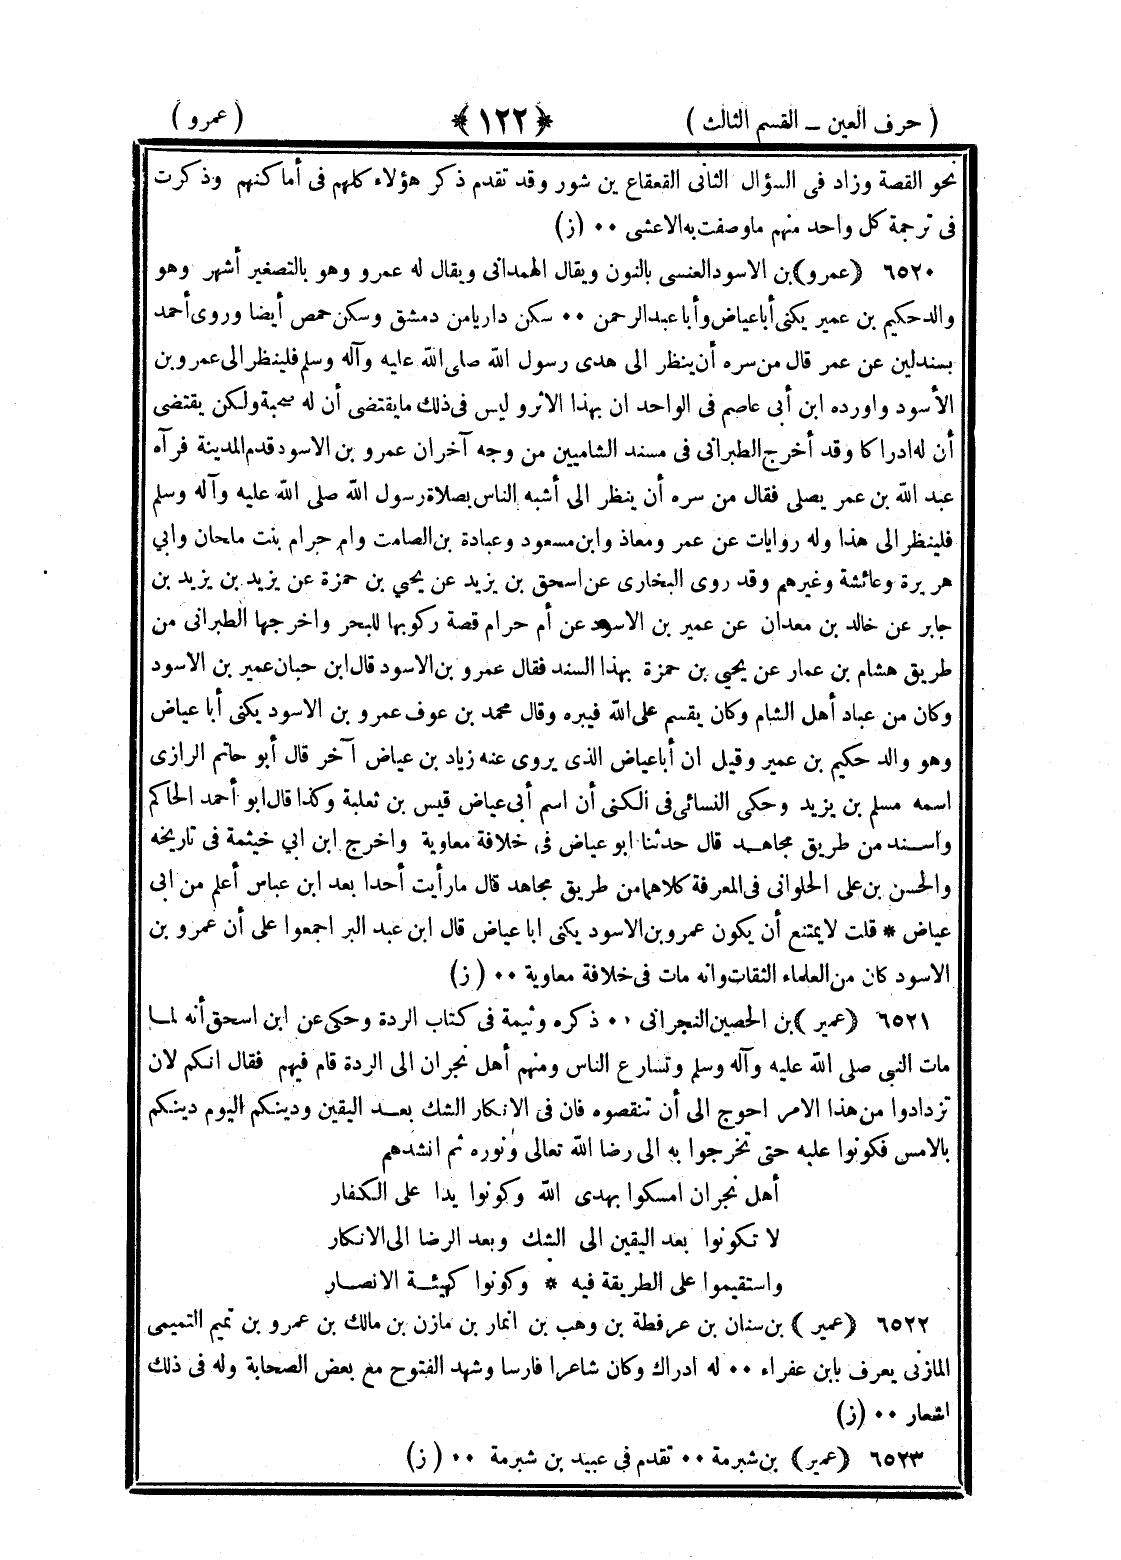 ( حرف العين – القسم الثالث ) ﴿ ١٢٢ ﴾ ( عمرو )
نحو القصة وزاد فى السؤال الثانى القعقاع بن شور وقد تقدم ذكر هؤلاء كلهم فى أماكنهم وذكرت
فى ترجمة كل واحد منهم ماوصفت به الاعشى ٠٠ (ز)
٦٥٢٠ ﴿عمرو﴾ بن الاسود العنسى بالنون ويقال الهمدانى ويقال له عمرو وهو بالتصغير أشهر وهو
والد حكيم بن عمير يكنى أبا عياض وأبا عبد الرحمن ٠٠ سكن داريا من دمشق وسكن حمص أيضا وروى أحمد
بسند لين عن عمر قال من سره أن ينظر الى هدى رسول الله صلى الله عليه وآله وسلم فلينظر الى عمرو بن
الأسود واورده ابن أبى عاصم فى الواحد ان بهذا الاثر و ليس فى ذلك مايقتضى أن له صحبة ولكن يقتضى
أن له ادراكا وقد أخرج الطبرانى فى مسند الشاميين من وجه آخر ان عمرو بن الاسود قدم المدينة فرآه
عبد الله بن عمر يصلى فقال من سره أن ينظر الى أشبه الناس بصلاة رسول الله صلى الله عليه وآله وسلم
فلينظر الى هذا وله روايات عن عمر ومعاذ وابن مسعود وعبادة بن الصامت وام حرام بنت ملحان وابي
هريرة وعائشة وغيرهم وقد روى البخارى عن اسحق بن يزيد عن يحيي بن حمزة عن يزيد بن يزيد بن
جابر عن خالد بن معدان عن عمير بن الاسود عن أم حرام قصة ركوبها للبحر واخرجها الطبرانى من
طريق هشام بن عمار عن يحيي بن حمزة بهذا السند فقال عمرو بن الاسود قال ابن حبان عمير بن الاسود
وكان من عباد أهل الشام وكان يقسم على الله فيبره وقال محمد بن عوف عمرو بن الاسود يكنى أبا عياض
وهو والد حكيم بن عمير وقيل ان أبا عياض الذى يروى عنه زياد بن عياض آخر قال أبو حاتم الرازى
اسمه مسلم بن يزيد وحكى النسائى فى الكنى أن اسم أبى عياض قيس بن ثعلبة وكذا قال ابو أحمد الحاكم
وأسند من طريق مجاهد قال حدثنا ابو عياض فى خلافة معاوية واخرج ابن ابي خيثمة فى تاريخه
والحسن بن على الحلوانى فى المعرفة كلاهما من طريق مجاهد قال مارأيت أحدا بعد ابن عباس أعلم من ابى
عياض * قلت لا يمتنع أن يكون عمرو بن الاسود يكنى ابا عياض قال ابن عبد البر اجمعوا على أن عمرو بن
الاسود كان من العلماء الثقات وانه مات فى خلافة معاوية ٠٠ (ز)
٦٥٢١ ﴿عمير﴾ بن الحصين النجرانى ٠٠ ذكره وثيمة فى كتاب الردة وحكى عن ابن اسحق أنه لما
مات النبى صلى الله عليه وآله وسلم وتسارع الناس ومنهم أهل نجران الى الردة قام فيهم فقال انكم لان
تزدادوا من هذا الامر احوج الى أن تنقصوه فان فى الانكار الشك بعد اليقين ودينكم اليوم دينكم
بالامس فكونوا عليه حتى تخرجوا به الى رضا الله تعالى ونوره ثم انشدهم
أهل نجران امسكوا بهدى الله وكونوا يدا على الكفار
لا تكونوا بعد اليقين الى الشك وبعد الرضا الى الانكار
واستقيموا على الطريقة فيه * وكونوا كهيئة الانصار
٦٥٢٢ ﴿عمير﴾ بن سنان بن عرفطة بن وهب بن انمار بن مازن بن مالك بن عمرو بن تميم التميمى
المازنى يعرف بابن عفراء ٠٠ له ادراك وكان شاعرا فارسا وشهد الفتوح مع بعض الصحابة وله فى ذلك
اشعار ٠٠ (ز)
٦٥٢٣ ﴿عمير﴾ بن شبرمة ٠٠ تقدم فى عبيد بن شبرمة ٠٠ (ز)